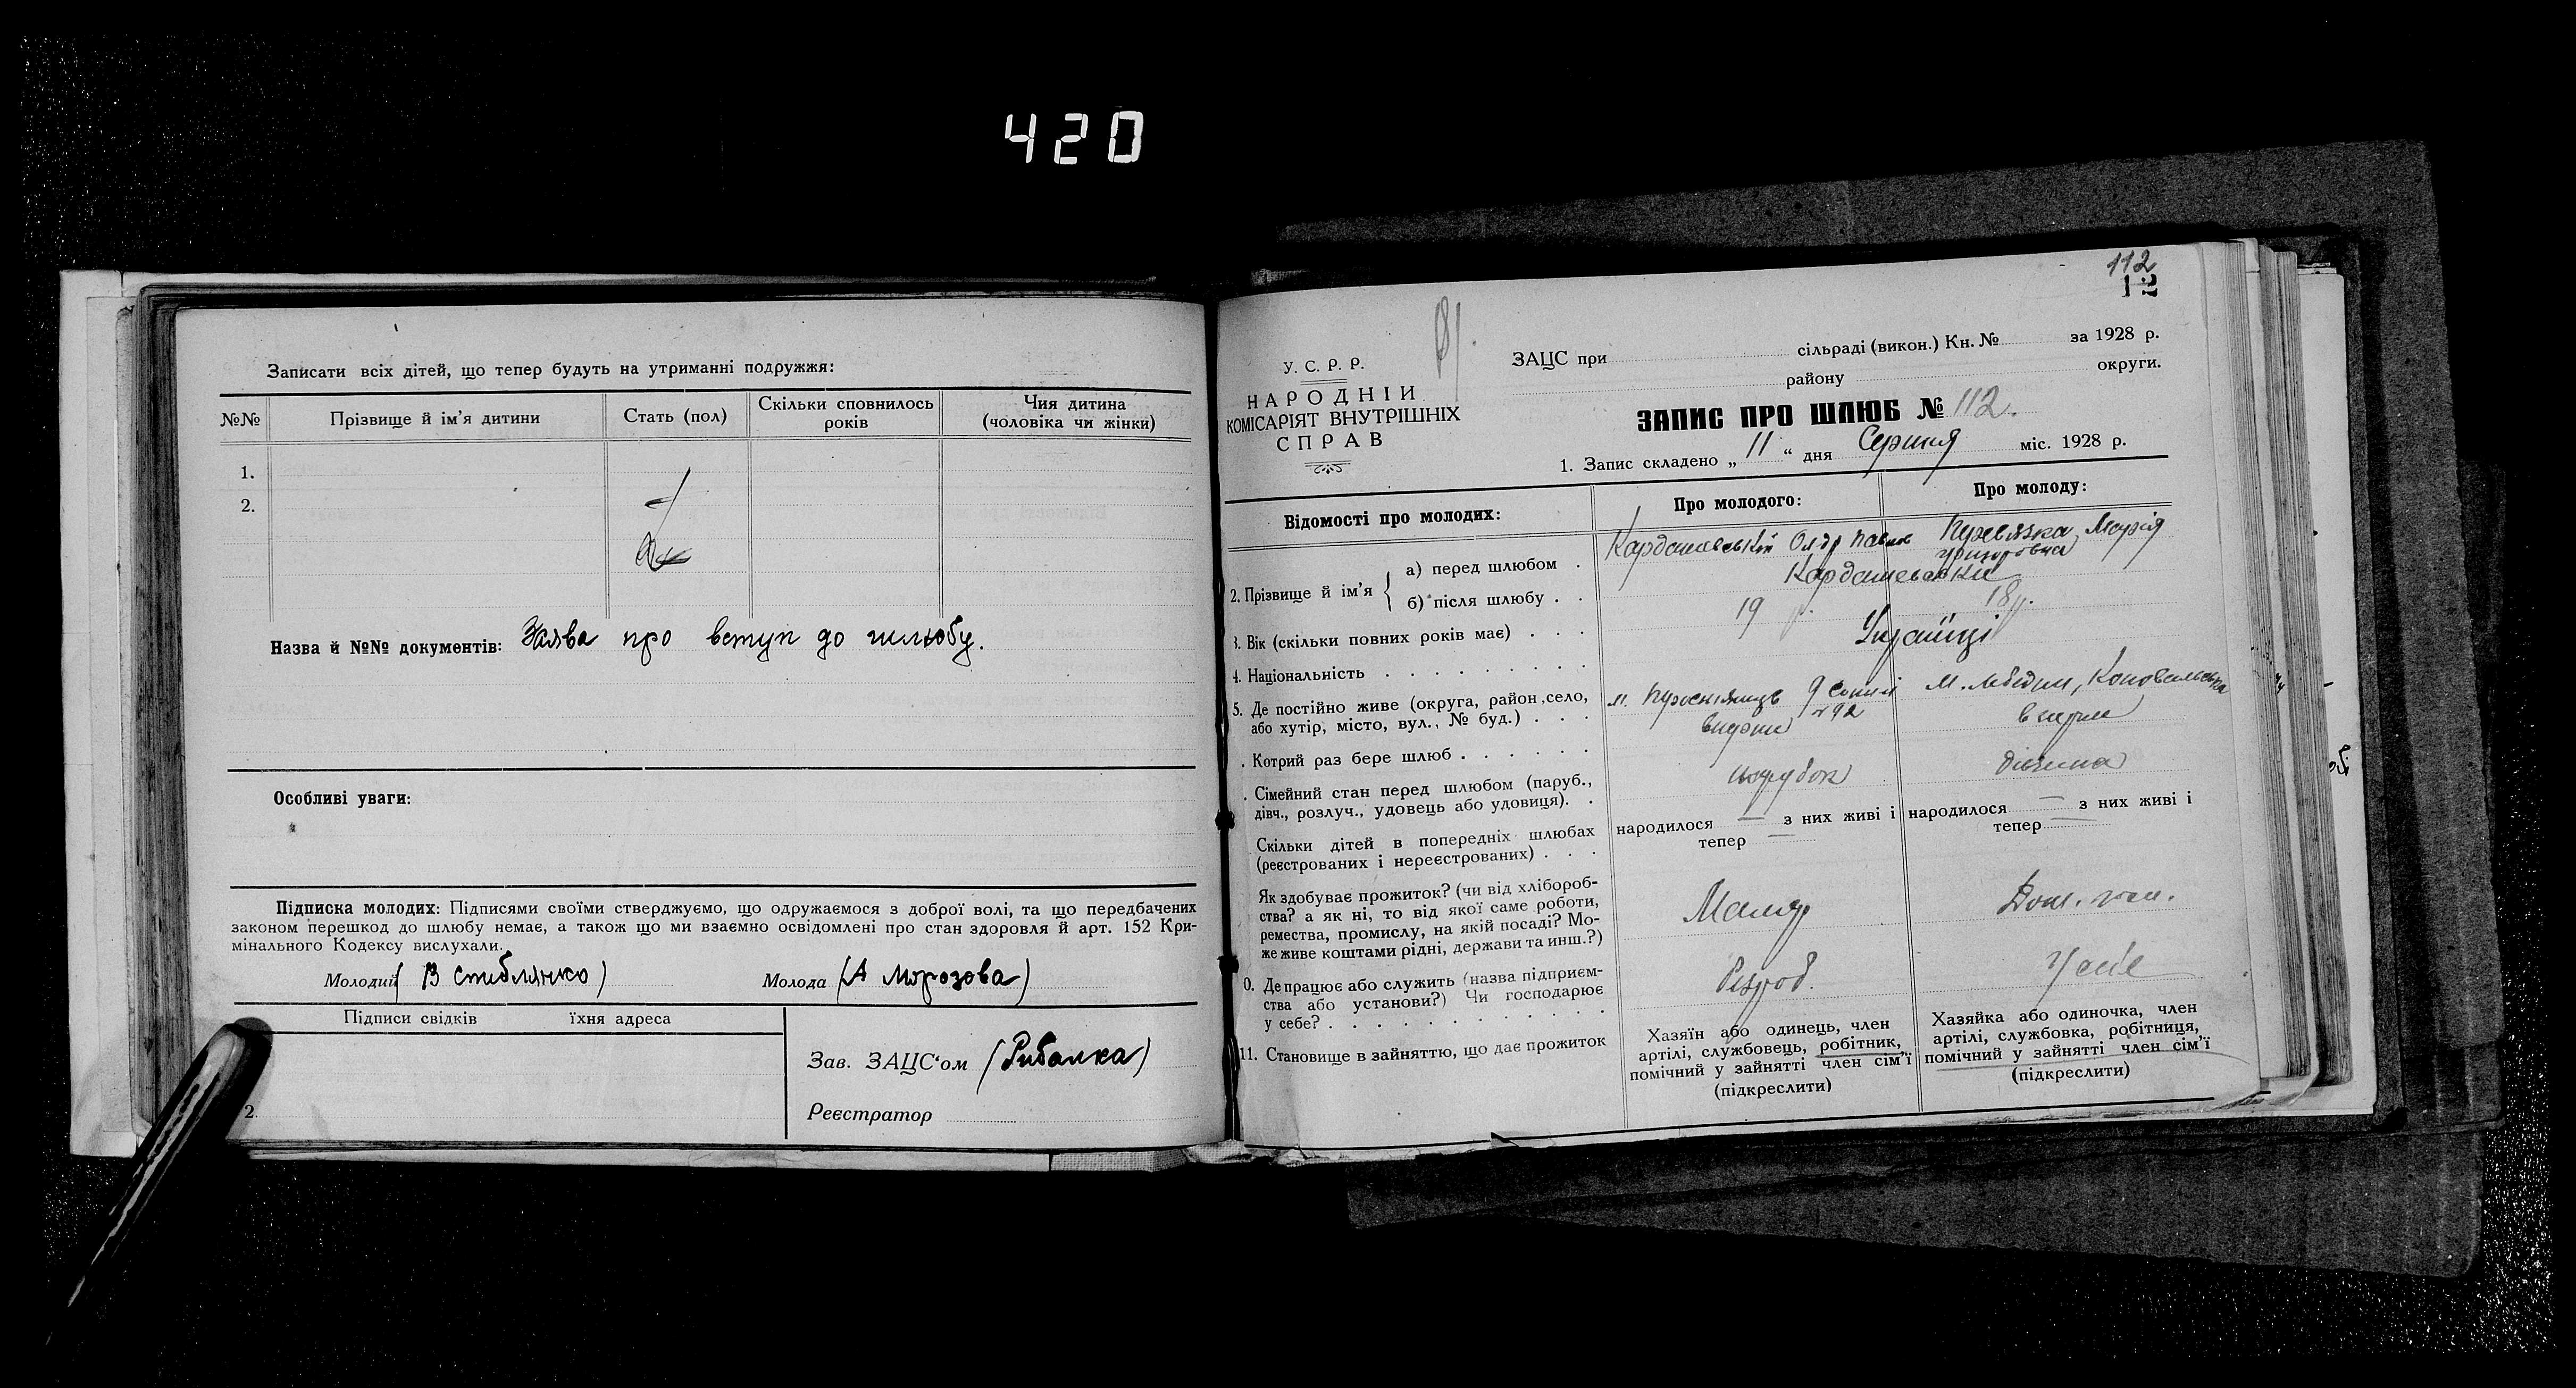 420
Записати всіх дітей, що тепер будуть на утриманні подружжя:
№№ Прізвище й ім'я дитини Стать (пол) Скільки сповнилось років Чия дитина (чоловіка чи жінки)
1.
2.
Назва й №№ документів: Заява про вступ до шлюбу.
Особливі уваги:
Підписка молодих: Підписями своїми стверджуємо, що одружаємося з доброї волі, та що передбачених
законом перешкод до шлюбу немає, а також що ми взаємно освідомлені про стан здоровля й арт. 152 Кри-
мінального Кодексу вислухали.
Молодий (В Стеблянко) Молода (А Морозова)
Підписи свідків їхня адреса
Зав. ЗАЦС'ом (Рибалка)
2.
Реєстратор
112
12
У. С. Р. Р.
НАРОДНІЙ
КОМІСАРІЯТ ВНУТРІШНІХ
СПРАВ
ЗАЦС при сільраді (викон.) Кн. № за 1928 р.
району округи.
ЗАПИС ПРО ШЛЮБ № 112.
1. Запис складено „ 11 “ дня Серпня міс. 1928 р.
Відомості про молодих: Про молодого: Про молоду:
2. Прізвище й ім'я
а) перед шлюбом . Кардашевський Марія
б) після шлюбу . .
3. Вік (скільки повних років має) . . . 19 р. 18 р.
4. Національність . . . . . . . . Українці
5. Де постійно живе (округа, район, село,
або хутір, місто, вул., № буд.) . . . №92
м. Лебедин,
. Котрий раз бере шлюб . . . . . . вперше вперше
. Сімейний стан перед шлюбом (паруб.,
дівч., розлуч., удовець або удовиця). . парубок дівчина
Скільки дітей в попередніх шлюбах
(реєстрованих і нереєстрованих) . . .
народилося — з них живі і
тепер —
народилося — з них живі і
тепер —
Як здобуває прожиток? (чи від хлібороб-
ства? а як ні, то від якої саме роботи,
ремества, промислу, на якій посаді? Мо-
же живе коштами рідні, держави та инш.?)
Маляр
Дом. госп.
0. Де працює або служить (назва підприєм-
ства або установи?) Чи господарює
у себе? . . . . . . . . . . . .
11. Становище в зайняттю, що дає прожиток
Хазяїн або одинець, член
артілі, службовець, робітник,
помічний у зайнятті член сім'ї
(підкреслити)
Хазяйка або одиночка, член
артілі, службовка, робітниця,
помічний у зайнятті член сім'ї
(підкреслити)